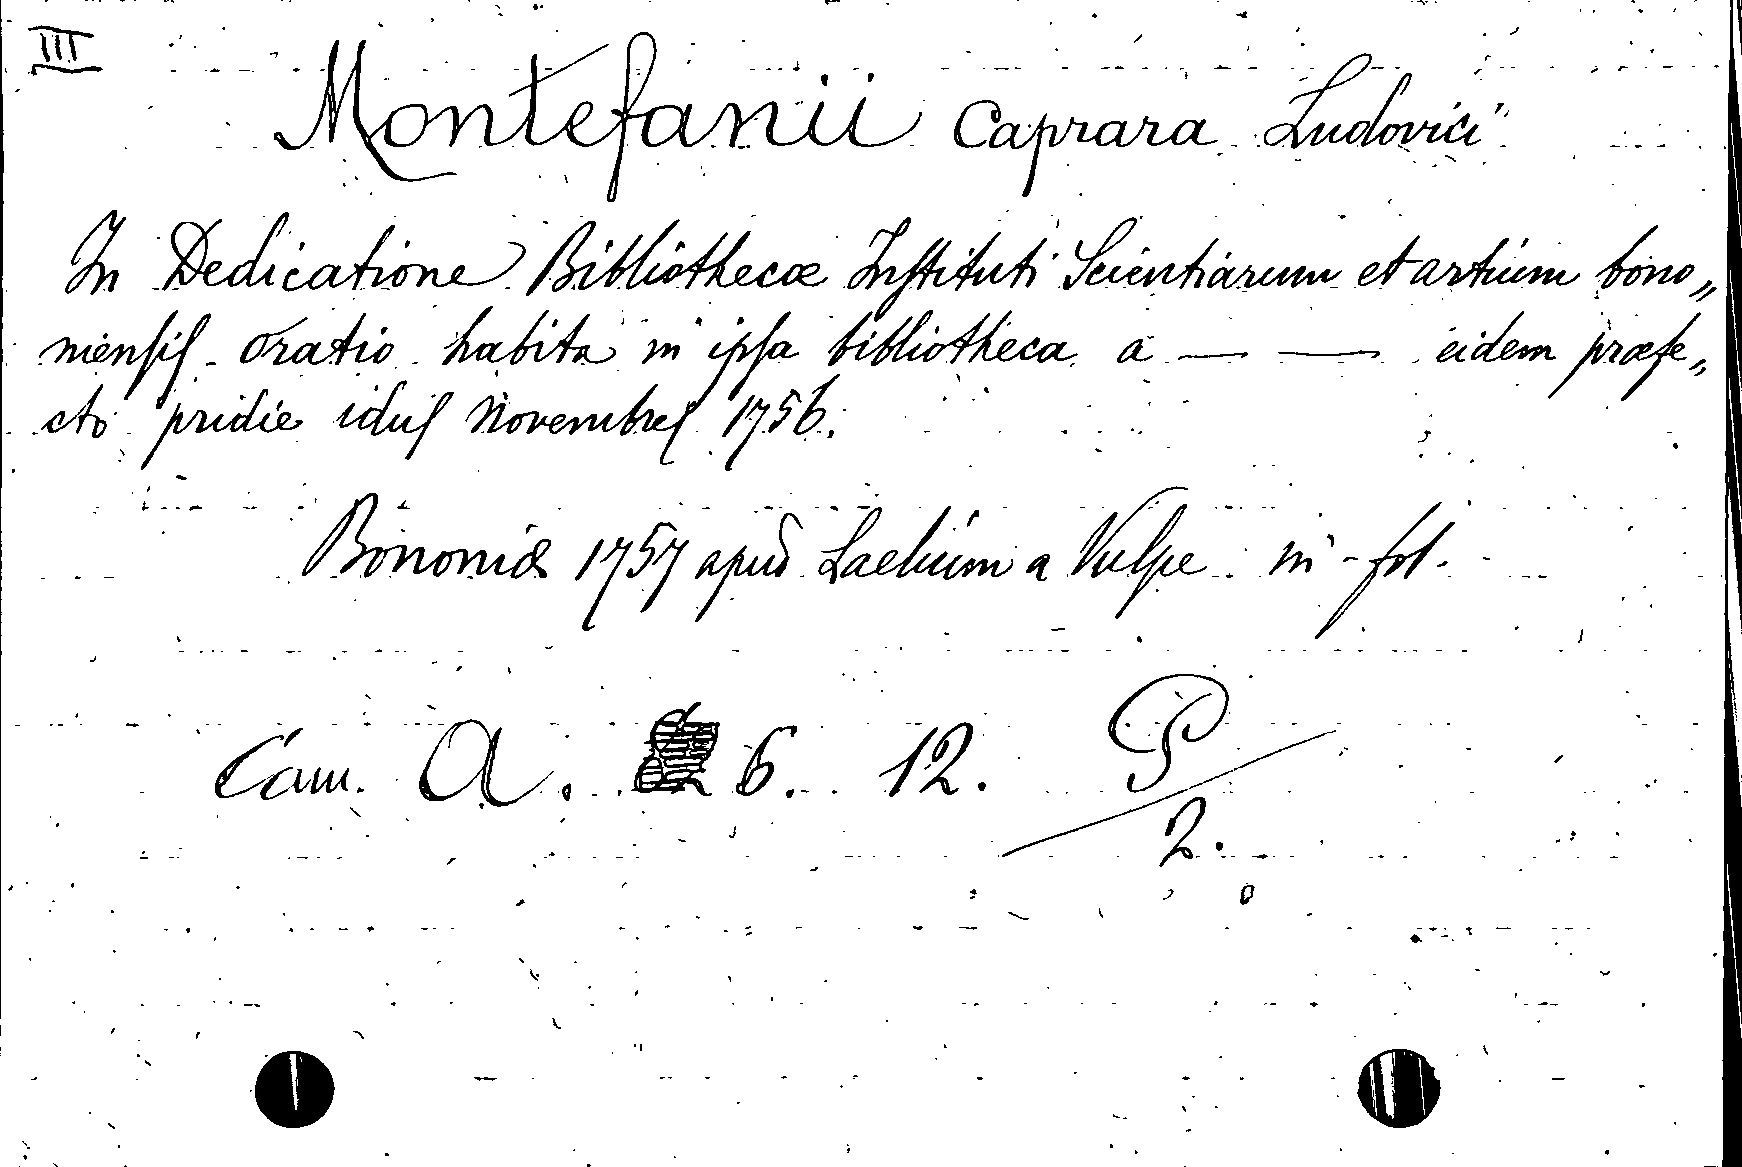 III
Montefanii Caprara Ludovici
In Dedicatione Bibliothecæ Instituti Scientiarum et artium bono„
niensis oratio habita in ipsa bibliotheca a — — eidem præfe„
cto pridie idus Novembres 1756.
Bononiæ 1757 apud Laelium a Vulpe in-fol.
Cam. A. 6. 12. P/2.